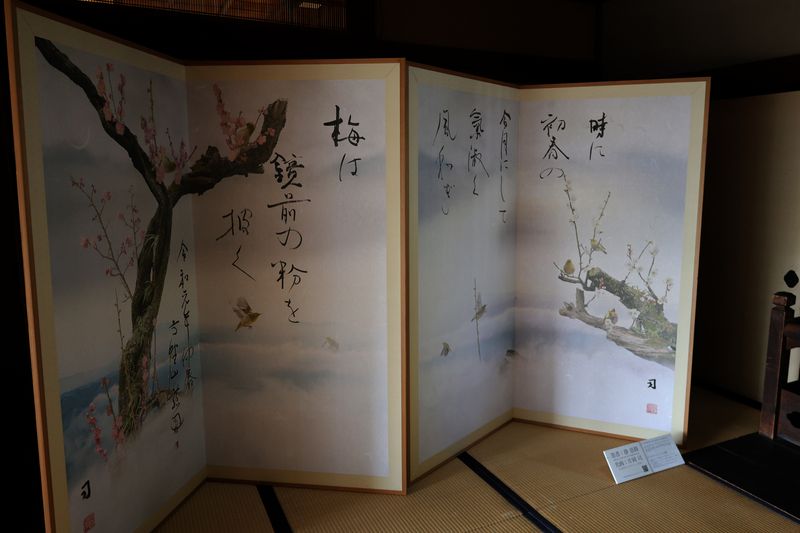 時に
初春の
令月にして
氣淑く
風和ぎ
梅は
鏡前の
粉を
披く
令和元年初春
司
司